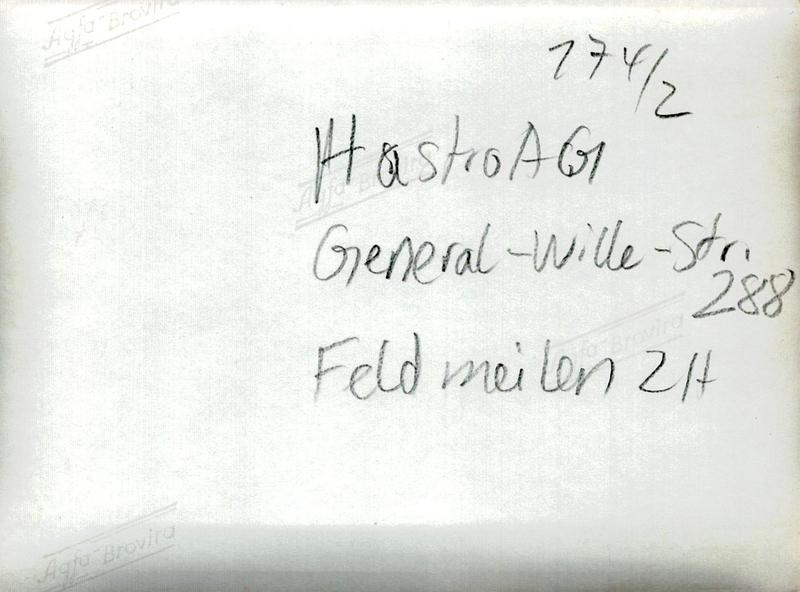 Agfa-Brovira
174/2
Hastro AG
Agfa-Brovira
General-Wille-Str.
288
Agfa-Brovira
Feldmeilen ZH
Agfa-Brovira